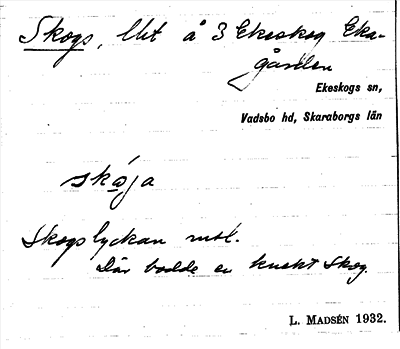 Skogs, Lht å 3 Ekeskog Eka-
gården
Ekeskogs sn,
Vadsbo hd, Skaraborgs län
skoga
Skogslyckan
Där bodde en knekt Skog.
L. MADSÉN 1932.